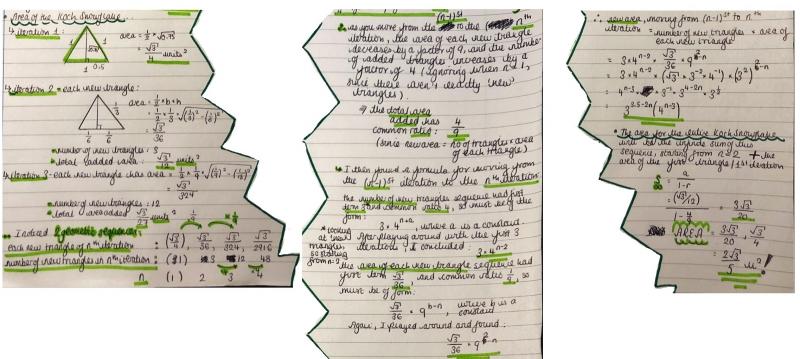 Area of the Koch Snowflake...
iteration 1:
area = 1/2 × √0.75
= √3/4 units²
1 1
1 0.5
iteration 2 = each new triangle:
area = 1/2 × b × h
= 1/2 · 1/3 · √((1/3)² - (1/6)²)
= √3/36
1/3
1/6 1/6
• number of new triangles: 3
• total added area: √3/12 units²
iteration 3 - each new triangle has area =
= √3/324
• number of new triangles: 12
• total area added units²
• I noticed 2 geometric sequences
each new triangle of nth iteration: (√3/4) √3/36 √3/324 √3/2916
number of new triangles in nth iteration: (1) 3 12 48
n (1) 2 3 4
as you move from the (n-1)st to the nth
iteration, the area of each new triangle
decreases by a factor of 9, and the number
of added triangles increases by a
factor of 4 (ignoring when n=1,
since there aren't exactly 'new'
triangles)
⇒ the total area
added has
common ratio: 4/9
(since new area = no of triangles × area
of each triangle)
I then found a formula for moving from
the (n-1)st iteration to the nth iteration
the number of new triangles sequence had first
term 3 and common ratio 4, so must be of the
form:
3 × 4^(n+a), where a is a constant.
After playing around with the first 3
iterations, I concluded:
3 × 4^(n-2)
* looking
at 'new'
triangles,
so starting
from n=2
the area of each new triangle sequence had
first term √3/36, and common ratio 1/9, so
must be of form:
√3/36 × 9^(b-n), where b is a
constant
Again, I played around and found:
√3/36 × 9^(2-n)
∴ new area, moving from (n-1)st to nth
iteration = number of new triangles × area of
each new triangle
= 3 × 4^(n-2) × √3/36 × 9^(2-n)
= 3 × 4^(n-2) × (√3 × 3^-2 × 4^-1) × (3²)^(2-n)
= 4^(n-3) × 3^-1 × 3^(4-2n) × 3^(1/2)
= 3^(3.5-2n) (4^(n-3))
• The area for the entire Koch Snowflake
will be the infinite sum of this
sequence, starting from n=2 + the
area of the first triangle/1st iteration
S∞ = a/(1-r)
= (√3/12)/(1-4/9) = 3√3/20
AREA = 3√3/20 + √3/4
= 2√3/5 u²!